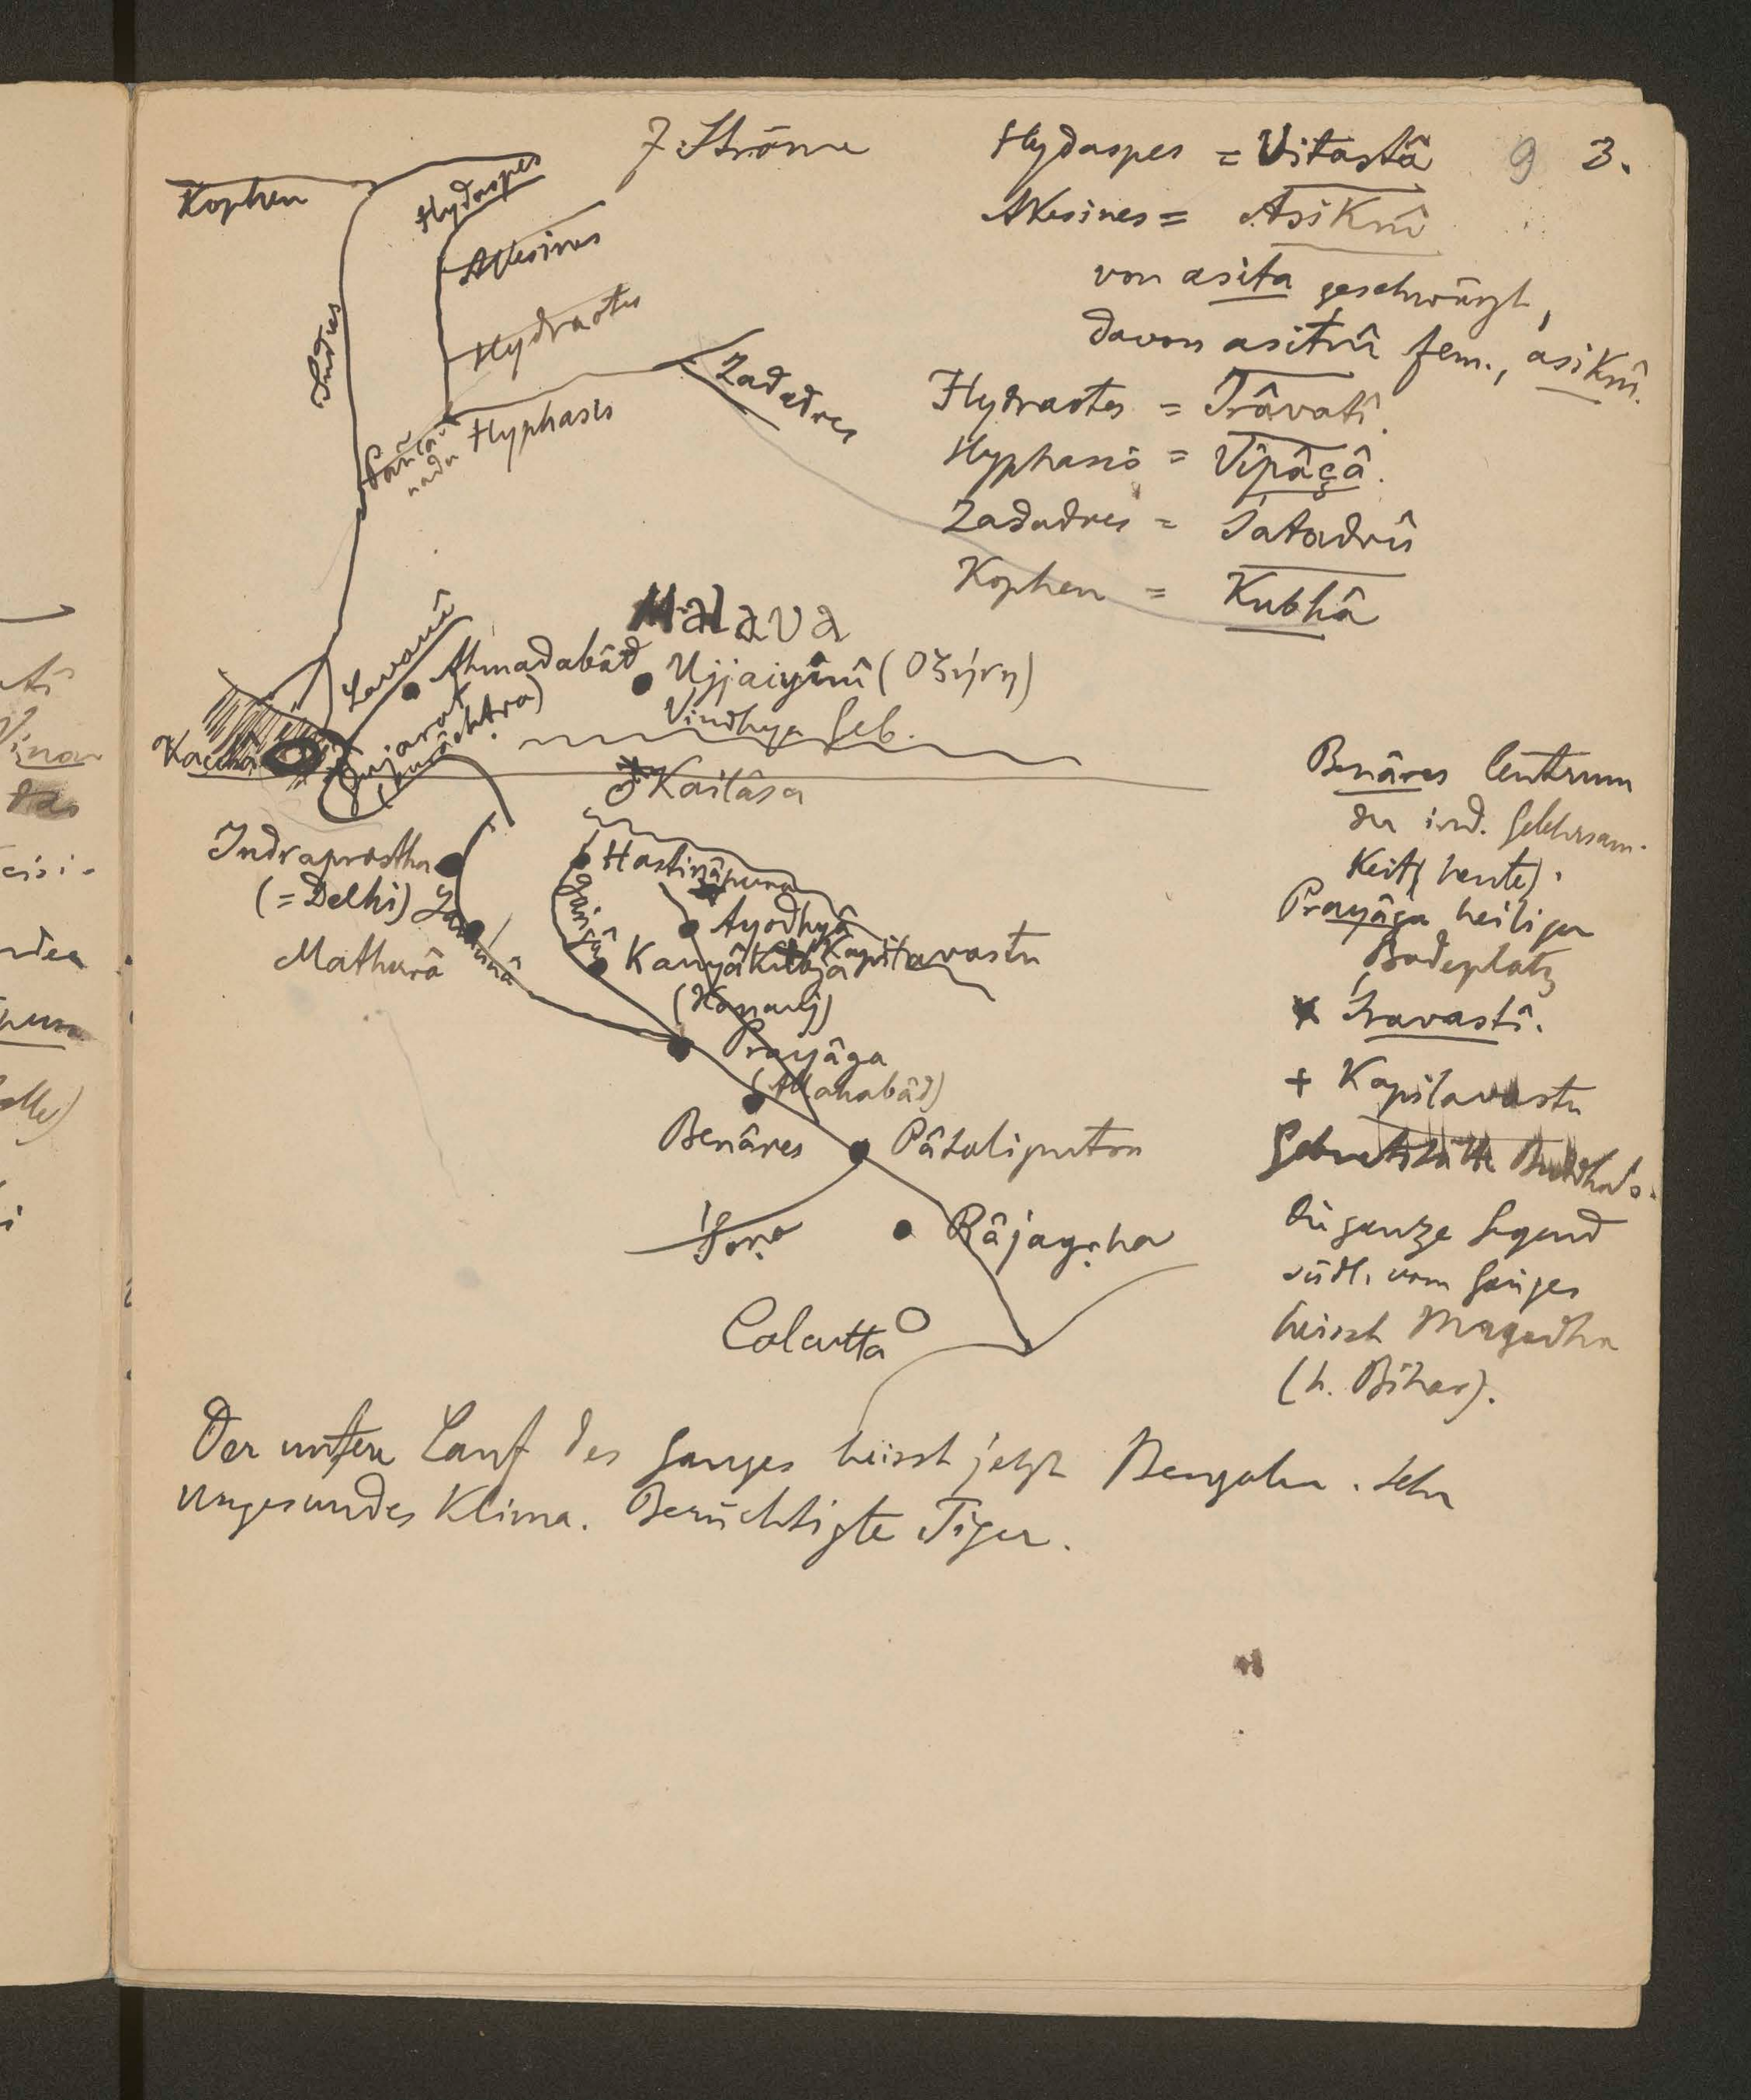 7 Ströme
9 3.
Kophen
Hydaspes
Akesines
Hydraotes
Indus
Zadadres
Hyphasis
Pañca
nada
Hydaspes = Vitastâ
Akesines = Asiknî
von asita geschwärzt,
davon asitnî fem., asiknî.
Hydraotes = Irâvatî.
Hyphasis = Vipâçâ.
Zadadres = Śatadrû
Kophen = Kubhâ
Malava
Lavanî
Ahmadabâd
Ujjaiyinî (Οζήνη)
Gujarat
Vindhya Geb.
Kaccha
Kailâsa
Indraprastha
(= Delhi)
Hastinâpura
Yamunâ
Gangâ
Ayodhyâ
Mathurâ
Kanyâkubja
Kapilavastu
(Kanauj)
Prayâga
(Allahabâd)
Benâres
Pâṭaliputra
Śoṇa
Râjagṛha
Calcutta
Benâres Centrum
der ind. Gelehrsam-
keit (heute).
Prayâga heiliger
Badeplatz
Śravastî.
+ Kapilavastu
Geburtsstätte Buddhas.
Die ganze Gegend
südl. vom Ganges
heisst Magadha
(h. Bihar).
Der untere Lauf des Ganges heisst jetzt Bengalen. Sehr
ungesundes Klima. Berüchtigte Tiger.